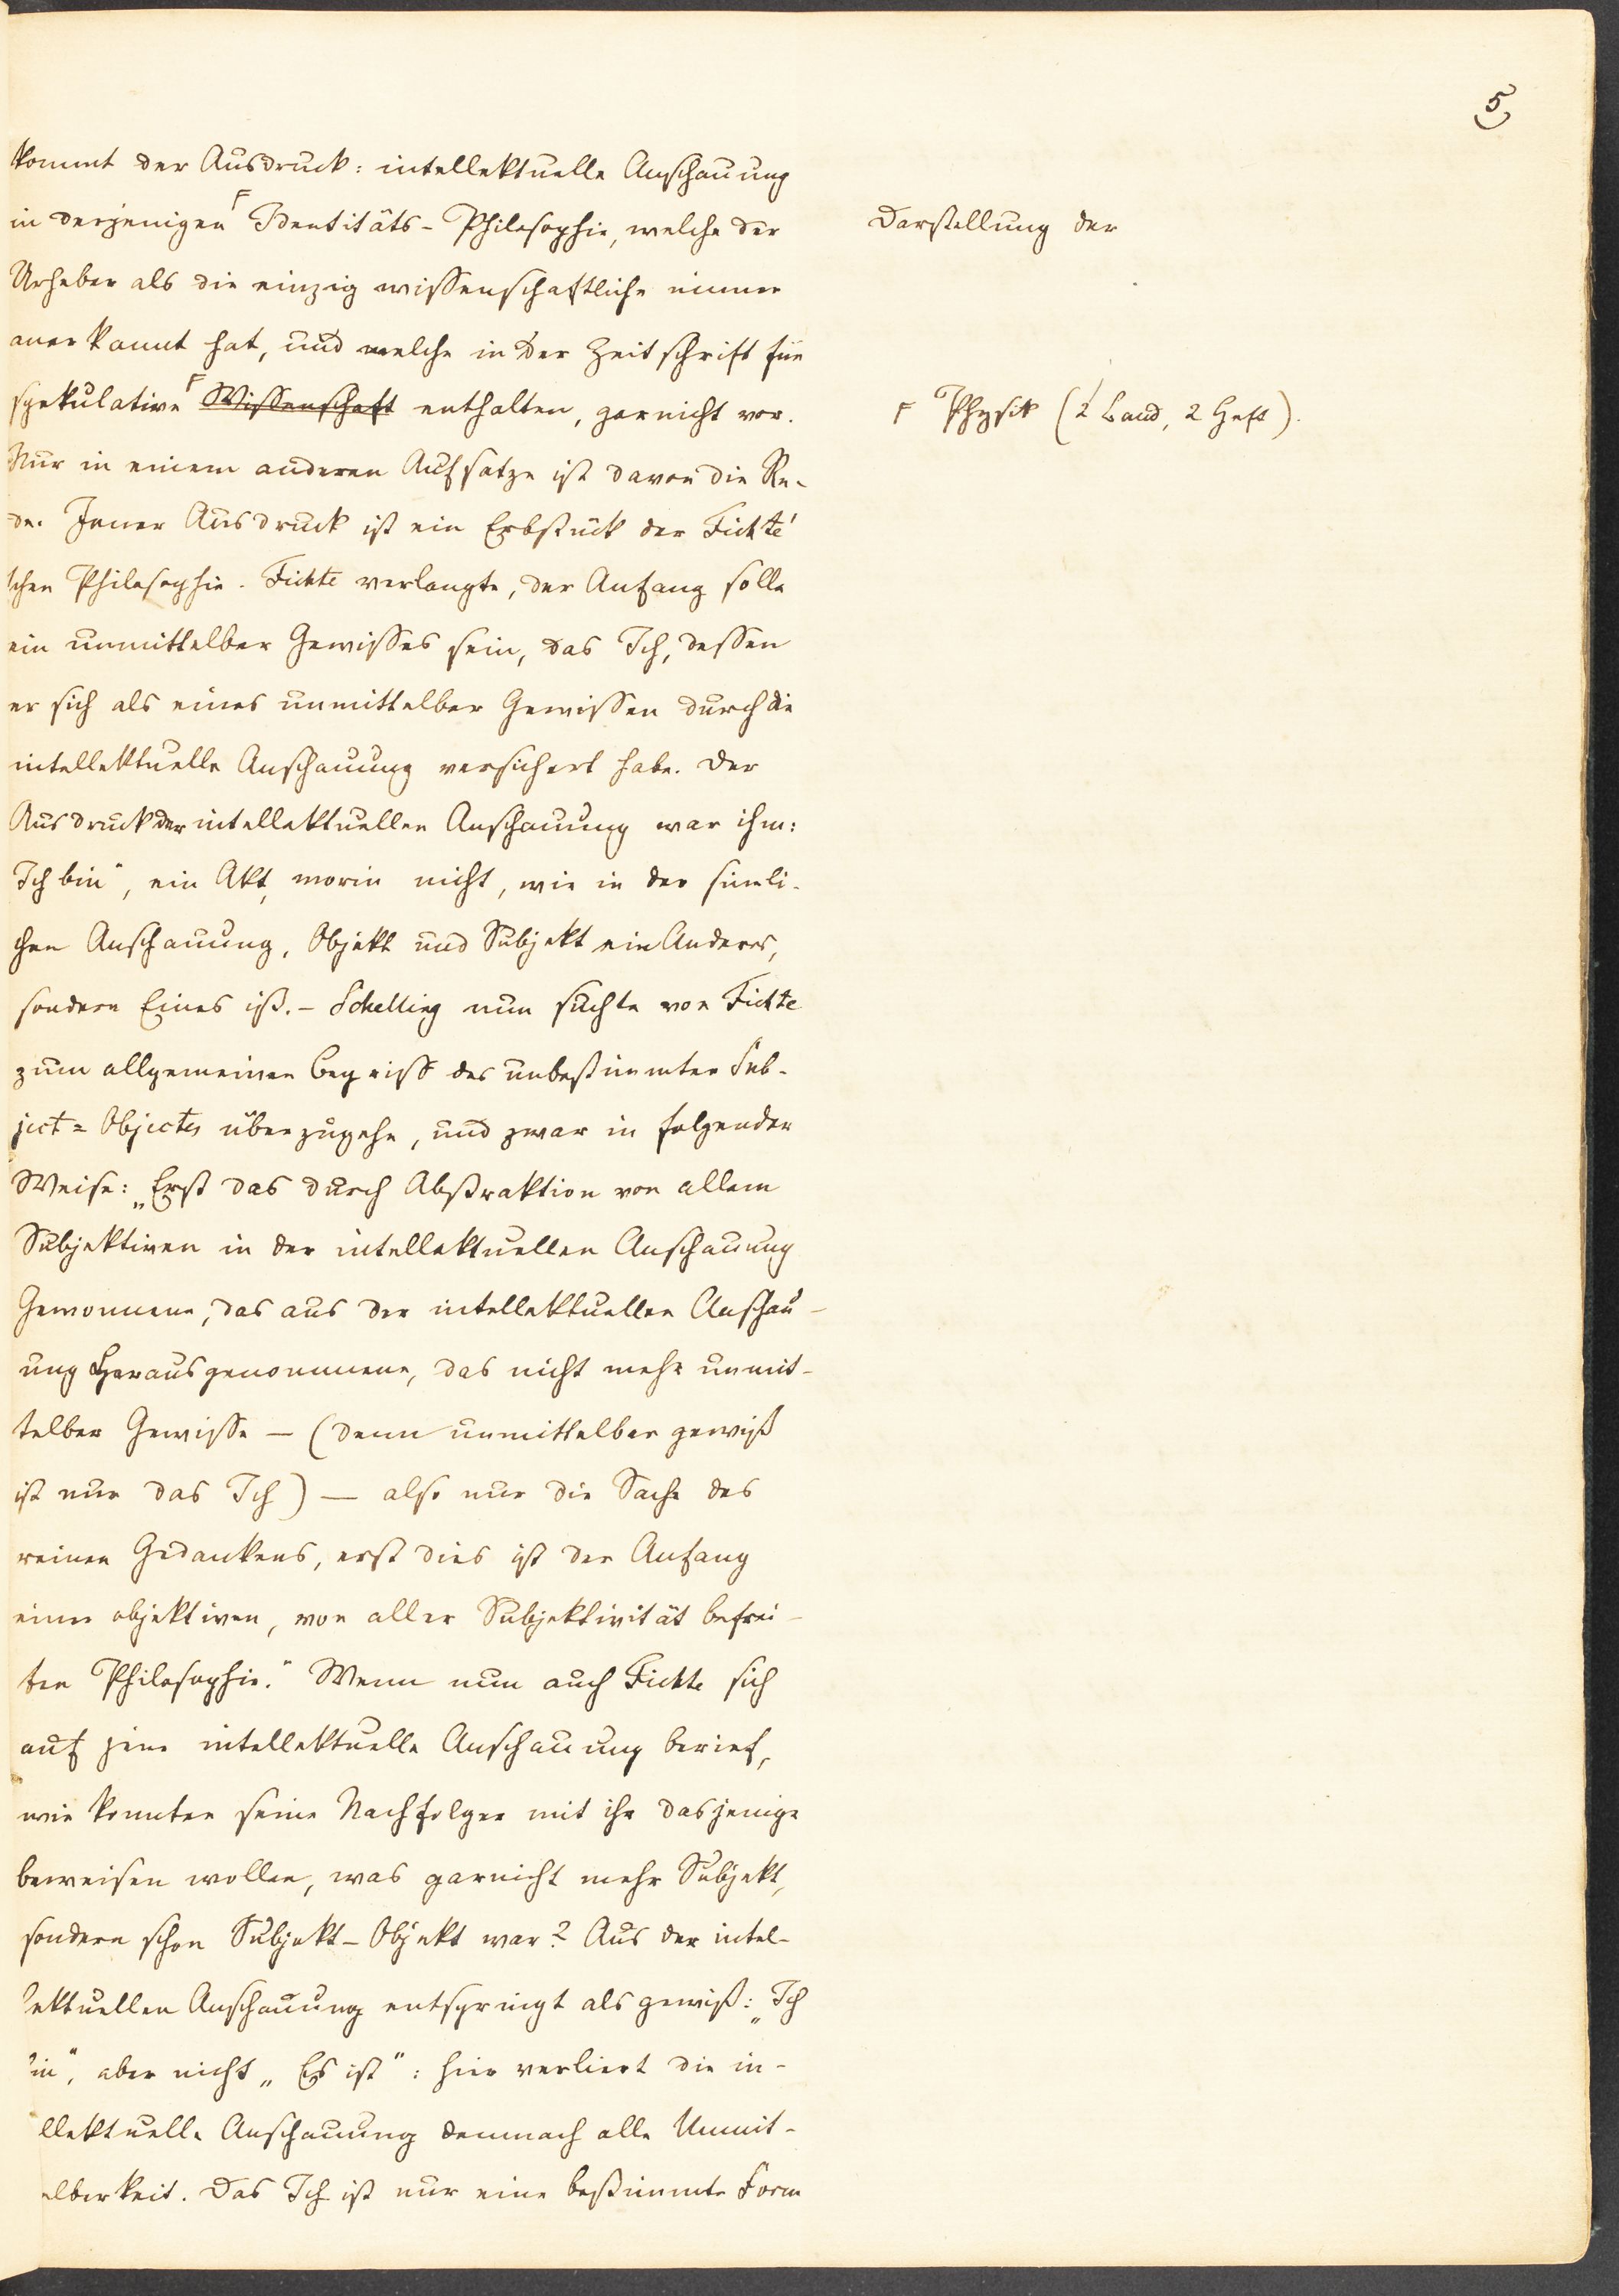 5
kommt der Ausdruck: intellektuelle Anschauung
in derjenigen ┌ Identitäts-Philosophie, welche der
Darstellung der
Urheber als die einzig wissenschaftliche immer
anerkannt hat, und welche in der Zeitschrift für
spekulative ┌ Wissenschaft enthalten, gar nicht vor.
┌ Physik (2 Band, 2 Heft).
Nur in einem anderen Aufsatze ist davon die Re-
de. Jener Ausdruck ist ein Erbstück der Fichte'
schen Philosophie. Fichte verlangte, der Anfang solle
ein unmittelbar Gewisses sein, das Ich, dessen
er sich als eines unmittelbar Gewissen durch die
intellektuelle Anschauung versichert habe. Der
Ausdruck der intellektuellen Anschauung war ihm:
Ich bin“, ein Akt, worin nicht, wie in der sinnli-
chen Anschauung, Objekt und Subjekt ein Anderes,
sondern Eines ist. – Schelling nun suchte von Fichte
zum allgemeinen Begriff des unbestimmten Sub-
ject=Objectes überzugehn, und zwar in folgender
Weise: „Erst das durch Abstraktion von allem
Subjektiven in der intellektuellen Anschauung
Gewonnene, das aus der intellektuellen Anschau-
ung Herausgenommene, das nicht mehr unmit-
telbar Gewisse — (denn unmittelbar gewiß
ist nur das Ich) — also nur die Sache des
reinen Gedankens, erst dies ist der Anfang
einer objektiven, von aller Subjektivität befrei-
ten Philosophie.“ Wenn nun auch Fichte sich
auf jene intellektuelle Anschauung berief,
wie konnten seine Nachfolger mit ihr dasjenige
beweisen wollen, was garnicht mehr Subjekt,
sondern schon Subjekt-Objekt war? Aus der intel-
lektuellen Anschauung entspringt als gewiß: „Ich
bin“, aber nicht „Es ist“: hier verliert die in-
llektuelle Anschauung demnach alle Unmit-
elbarkeit. Das Ich ist nur eine bestimmte Form